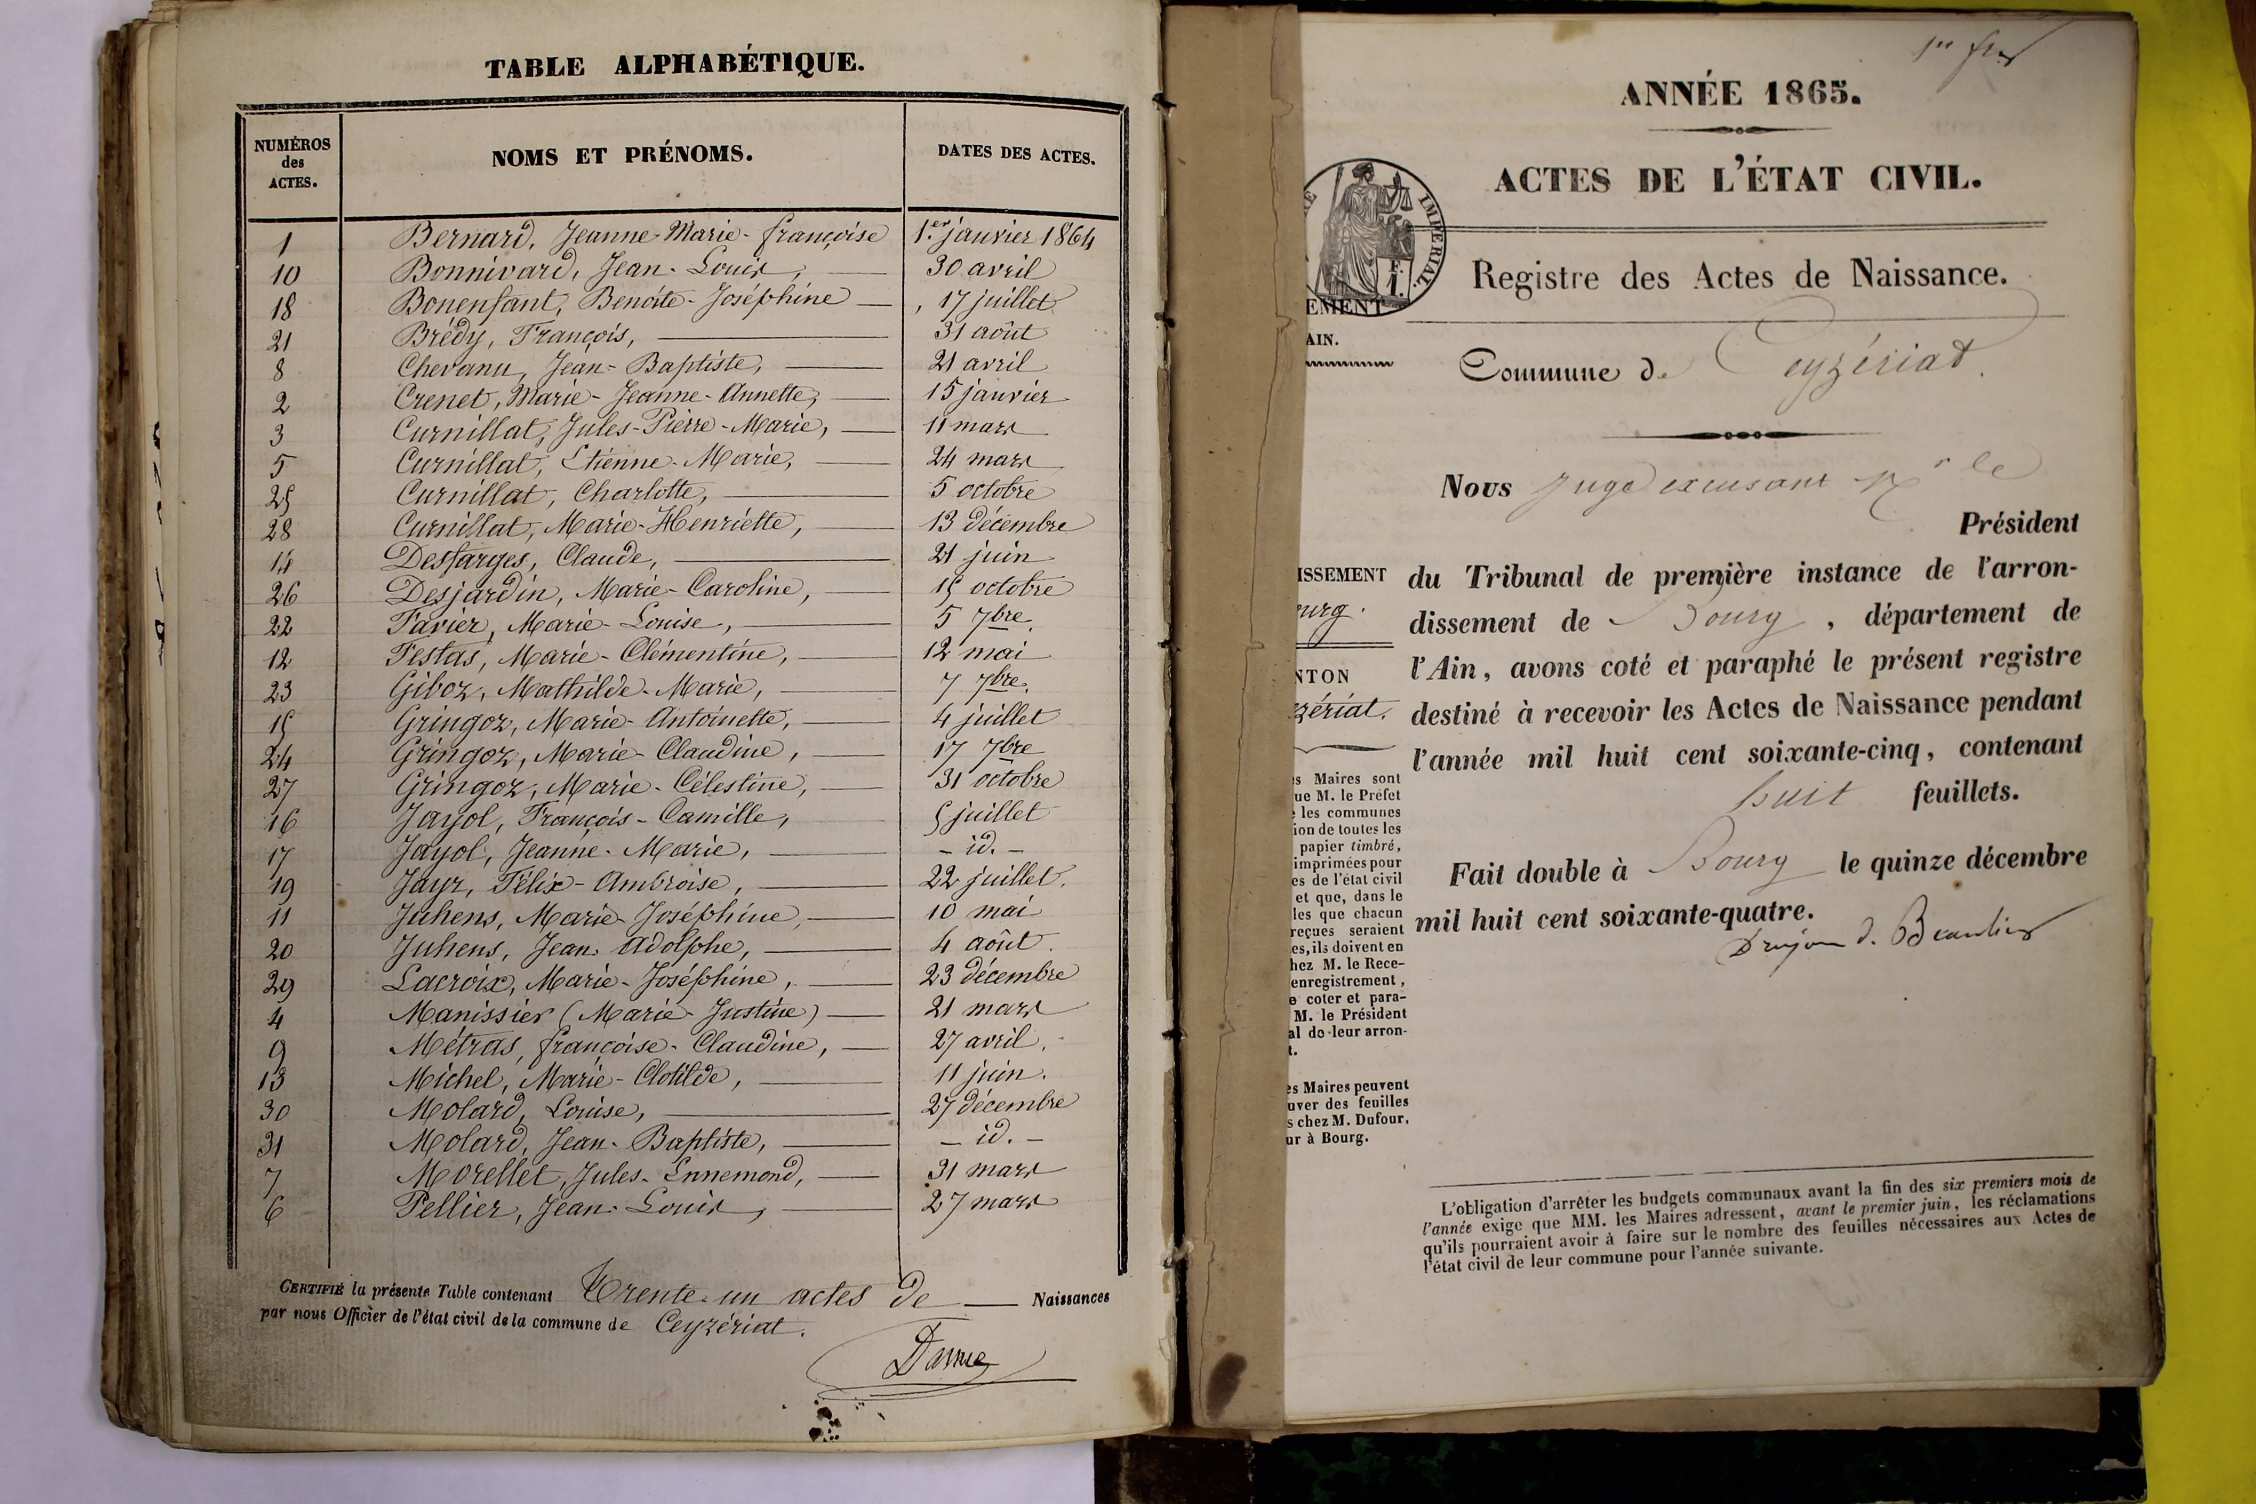 TABLE ALPHABÉTIQUE.
NUMÉROS des ACTES. NOMS ET PRÉNOMS. DATES DES ACTES.
1 Bernard, Jeanne-Marie-françoise 1.er janvier 1864
10 Bonnivard, Jean-Louis, 30 avril
18 Bonenfant, Benoîte-Joséphine 17 juillet
21 Brédy, François, 31 août
8 Chevanu, Jean-Baptiste, 21 avril
2 Crenet, Marie-Jeanne-Annette, 15 janvier
3 Curnillat, Jules-Pierre-Marie, 11 mars
5 Curnillat, Etienne-Marie, 24 mars
25 Curnillat, Charlotte, 5 octobre
28 Curnillat, Marie-Henriette, 13 décembre
14 Desfarges, Claude, 21 juin
26 Desjardin, Marie-Caroline, 15 octobre
22 Favier, Marie-Louise, 5 7bre.
12 Festas, Marie-Clémentine, 12 mai
23 Giboz, Mathilde-Marie, 7 7bre.
15 Gringoz, Marie-Antoinette, 4 juillet
24 Gringoz, Marie-Claudine, 17 7bre
27 Gringoz, Marie-Célestine, 31 octobre
16 Jayol, François-Camille, 5 juillet
17 Jayol, Jeanne-Marie, - id. -
19 Jayr, Félix-Ambroise, 22 juillet.
11 Juhens, Marie-Joséphine, 10 mai
20 Juhens, Jean-Adolphe, 4 août.
29 Lacroix, Marie-Joséphine, 23 décembre
4 Manissier (Marie-Justine) 21 mars
9 Métras, françoise-Claudine, 27 avril.
13 Michel, Marie-Clotilde, 11 juin.
30 Molard, Louise, 27 décembre
31 Molard, Jean-Baptiste, - id. -
7 Morellet, Jules-Ennemond, 31 mars
6 Pellier, Jean-Louis, 27 mars
CERTIFIÉ la présente Table contenant Trente-un actes de Naissances
par nous Officier de l'état civil de la commune de Ceyzériat.
ANNÉE 1865.
ACTES DE L'ÉTAT CIVIL.
IMPÉRIAL.
F.
1.
EMENT
AIN.
Registre des Actes de Naissance.
Commune de Ceyzériat.
Nous Juge excusant Mr le
Président
du Tribunal de première instance de l'arron-
dissement de Bourg, département de
l'Ain, avons coté et paraphé le présent registre
destiné à recevoir les Actes de Naissance pendant
l'année mil huit cent soixante-cinq, contenant
huit feuillets.
Fait double à Bourg le quinze décembre
mil huit cent soixante-quatre.
ISSEMENT
ourg.
NTON
zériat.
s Maires sont
ue M. le Préfet
les communes
ion de toutes les
papier timbré,
imprimées pour
es de l'état civil
et que, dans le
les que chacun
reçues seraient
es, ils doivent en
hez M. le Rece-
enregistrement,
e coter et para-
M. le Président
al de leur arron-
t.
es Maires peuvent
uver des feuilles
s chez M. Dufour,
ur à Bourg.
L'obligation d'arrêter les budgets communaux avant la fin des six premiers mois de
l'année exige que MM. les Maires adressent, avant le premier juin, les réclamations
qu'ils pourraient avoir à faire sur le nombre des feuilles nécessaires aux Actes de
l'état civil de leur commune pour l'année suivante.